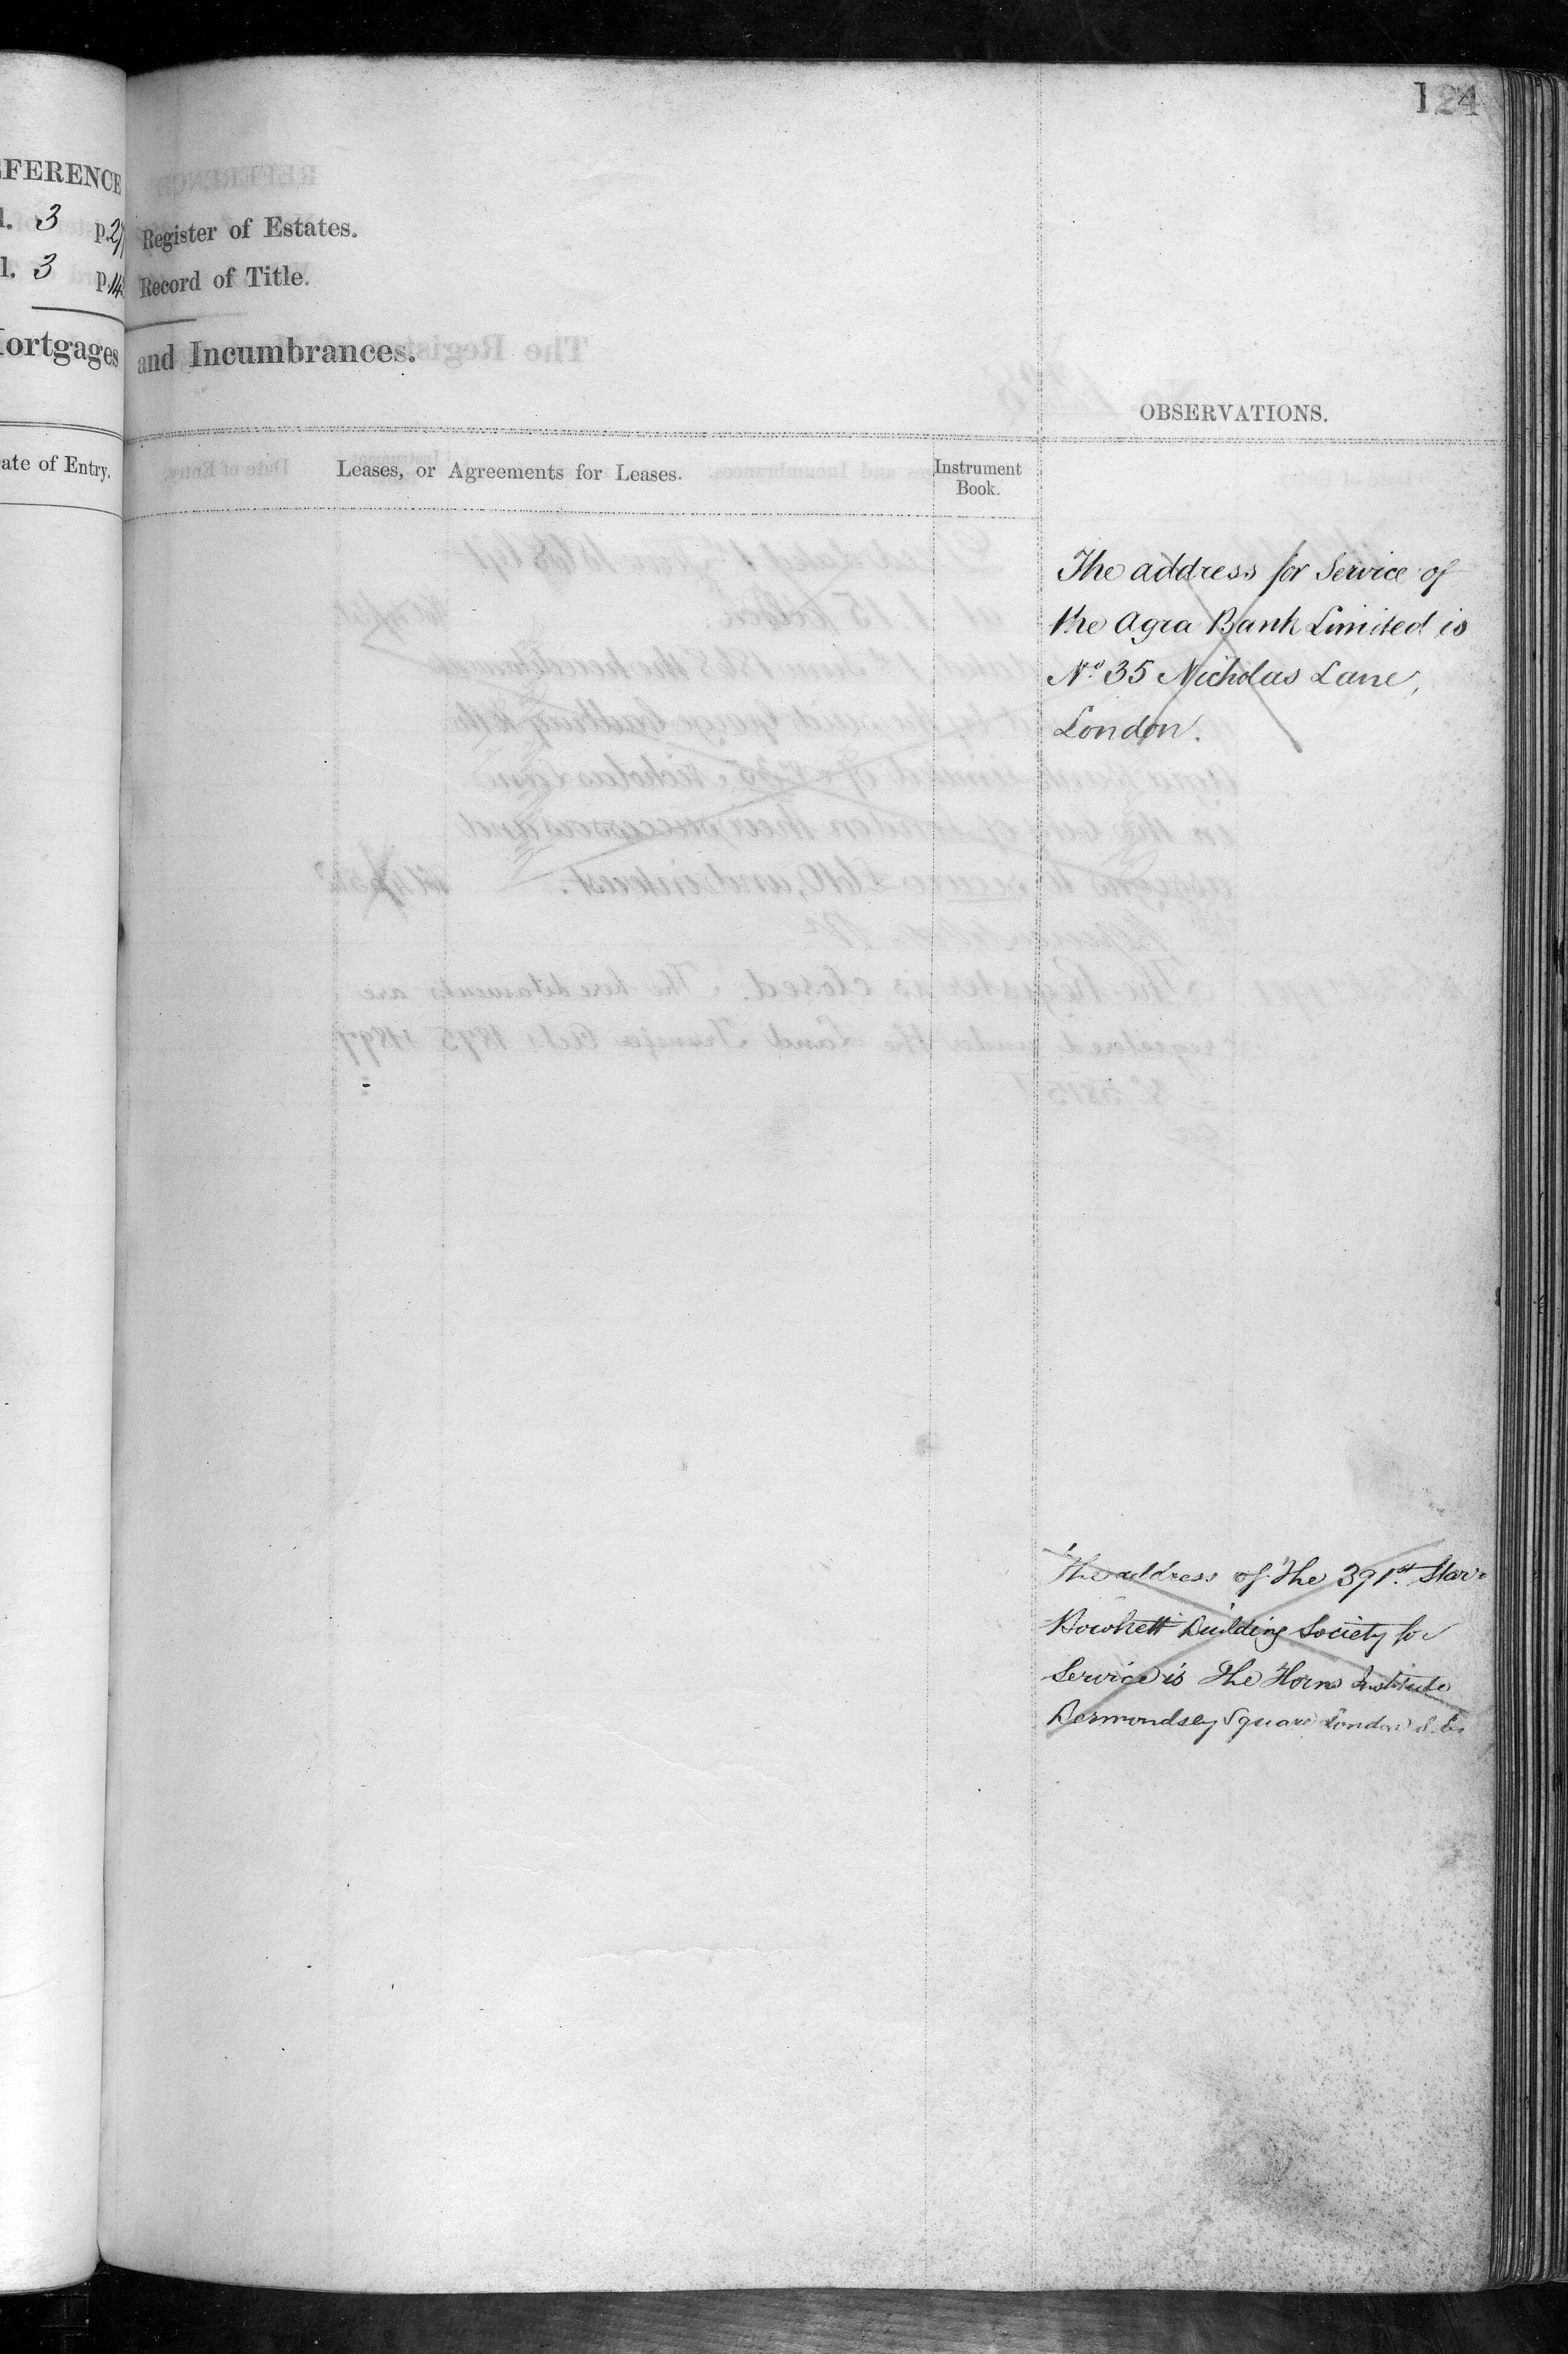 124
EFERENCE
l. 3 p.
Register of Estates.
l. 3 p.
Record of Title.
ortgages
and Incumbrances.
OBSERVATIONS.
ate of Entry.
Leases, or Agreements for Leases.
Instrument
Book.
The address for Service of
the Agra Bank Limited is
No. 35 Nicholas Lane,
London.
The address of The 391st. Starr
Bowkett Building Society for
Service is The Horns Institute
Bermondsey Square London S.E.